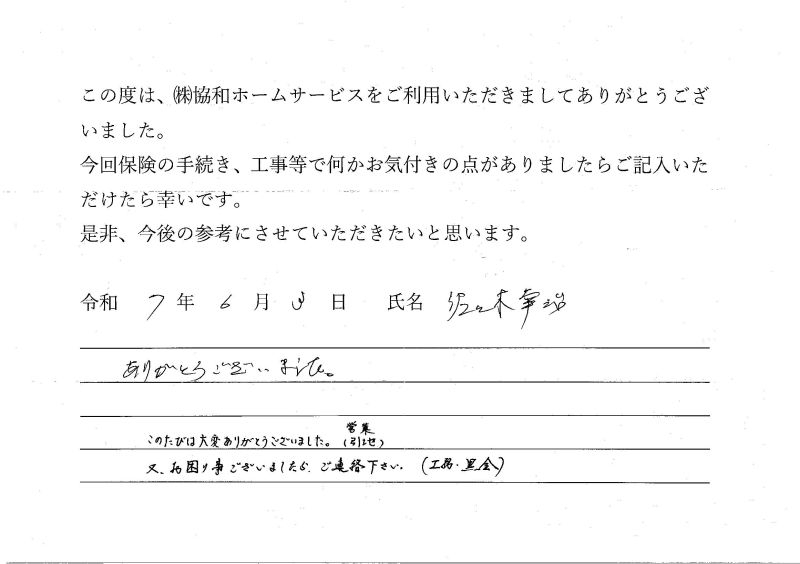 この度は、㈱協和ホームサービスをご利用いただきましてありがとうござ
いました。
今回保険の手続き、工事等で何かお気付きの点がありましたらご記入いた
だけたら幸いです。
是非、今後の参考にさせていただきたいと思います。
令和 7年 6月 日 氏名 佐々木幸治
ありがとうございました。
営業
このたびは大変ありがとうございました。(引地)
又、お困り事ございましたら、ご連絡下さい。(工務・里舎)